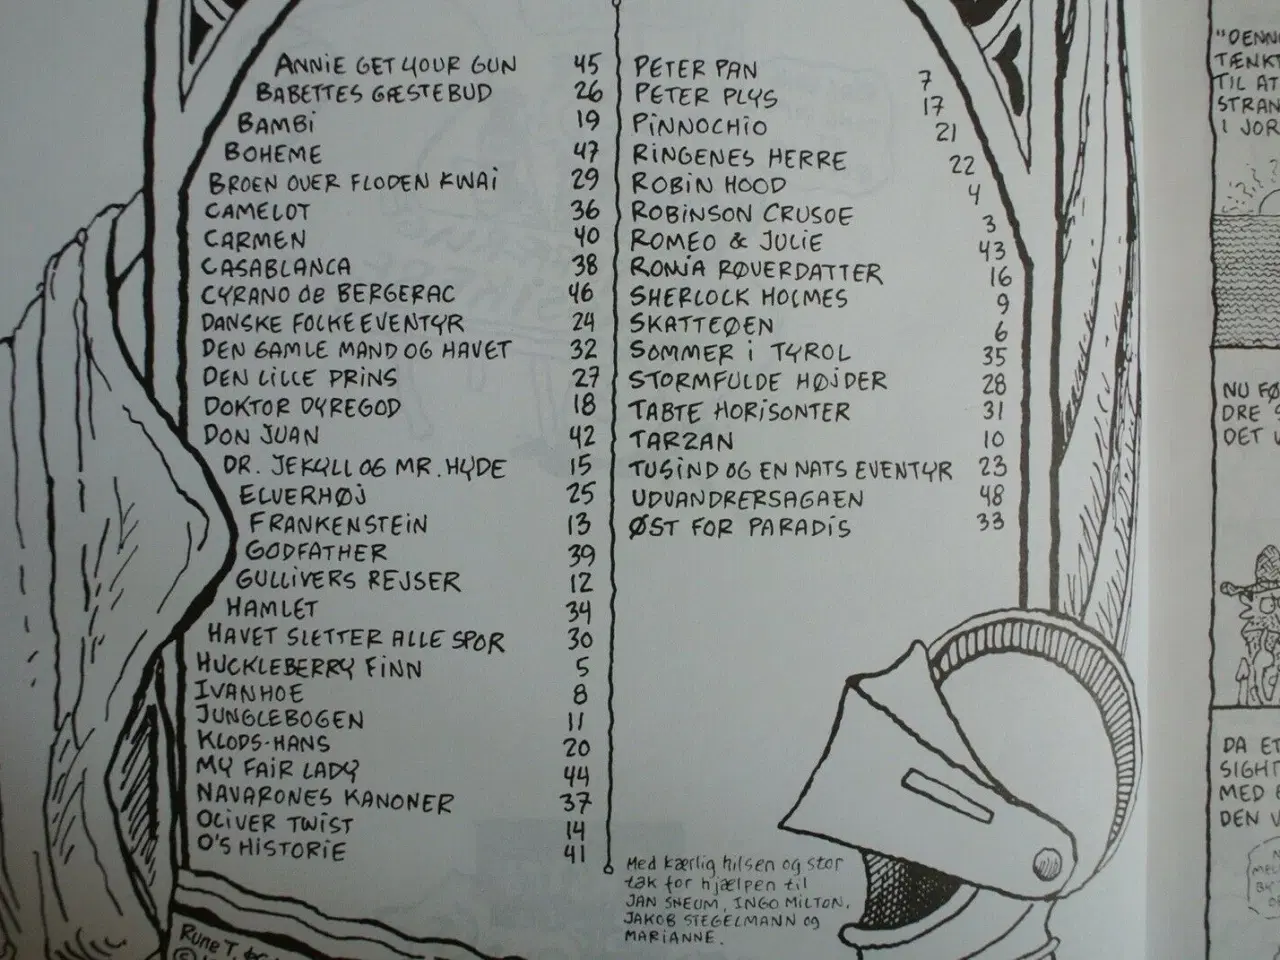 ANNIE GET YOUR GUN 45
BABETTES GÆSTEBUD 26
BAMBI 19
BOHEME 47
BROEN OVER FLODEN KWAI 29
CAMELOT 36
CARMEN 40
CASABLANCA 38
CYRANO de BERGERAC 46
DANSKE FOLKEEVENTYR 24
DEN GAMLE MAND OG HAVET 32
DEN LILLE PRINS 27
DOKTOR DYREGOD 18
DON JUAN 42
DR. JEKYLL OG MR. HYDE 15
ELVERHØJ 25
FRANKENSTEIN 13
GODFATHER 39
GULLIVERS REJSER 12
HAMLET 34
HAVET SLETTER ALLE SPOR 30
HUCKLEBERRY FINN 5
IVANHOE 8
JUNGLEBOGEN 11
KLODS-HANS 20
MY FAIR LADY 44
NAVARONES KANONER 37
OLIVER TWIST 14
O'S HISTORIE 41
PETER PAN 7
PETER PLYS 17
PINNOCHIO 21
RINGENES HERRE 22
ROBIN HOOD 4
ROBINSON CRUSOE 3
ROMEO & JULIE 43
RONJA RØVERDATTER 16
SHERLOCK HOLMES 9
SKATTEØEN 6
SOMMER I TYROL 35
STORMFULDE HØJDER 28
TABTE HORISONTER 31
TARZAN 10
TUSIND OG EN NATS EVENTYR 23
UDVANDRERSAGAEN 48
ØST FOR PARADIS 33
Med kærlig hilsen og stor
tak for hjælpen til
JAN SNEUM, INGO MILTON,
JAKOB STEGELMANN og
MARIANNE.
RUNE T.
©
TIL AT
I JOR
DET
DA ET
MED
DEN